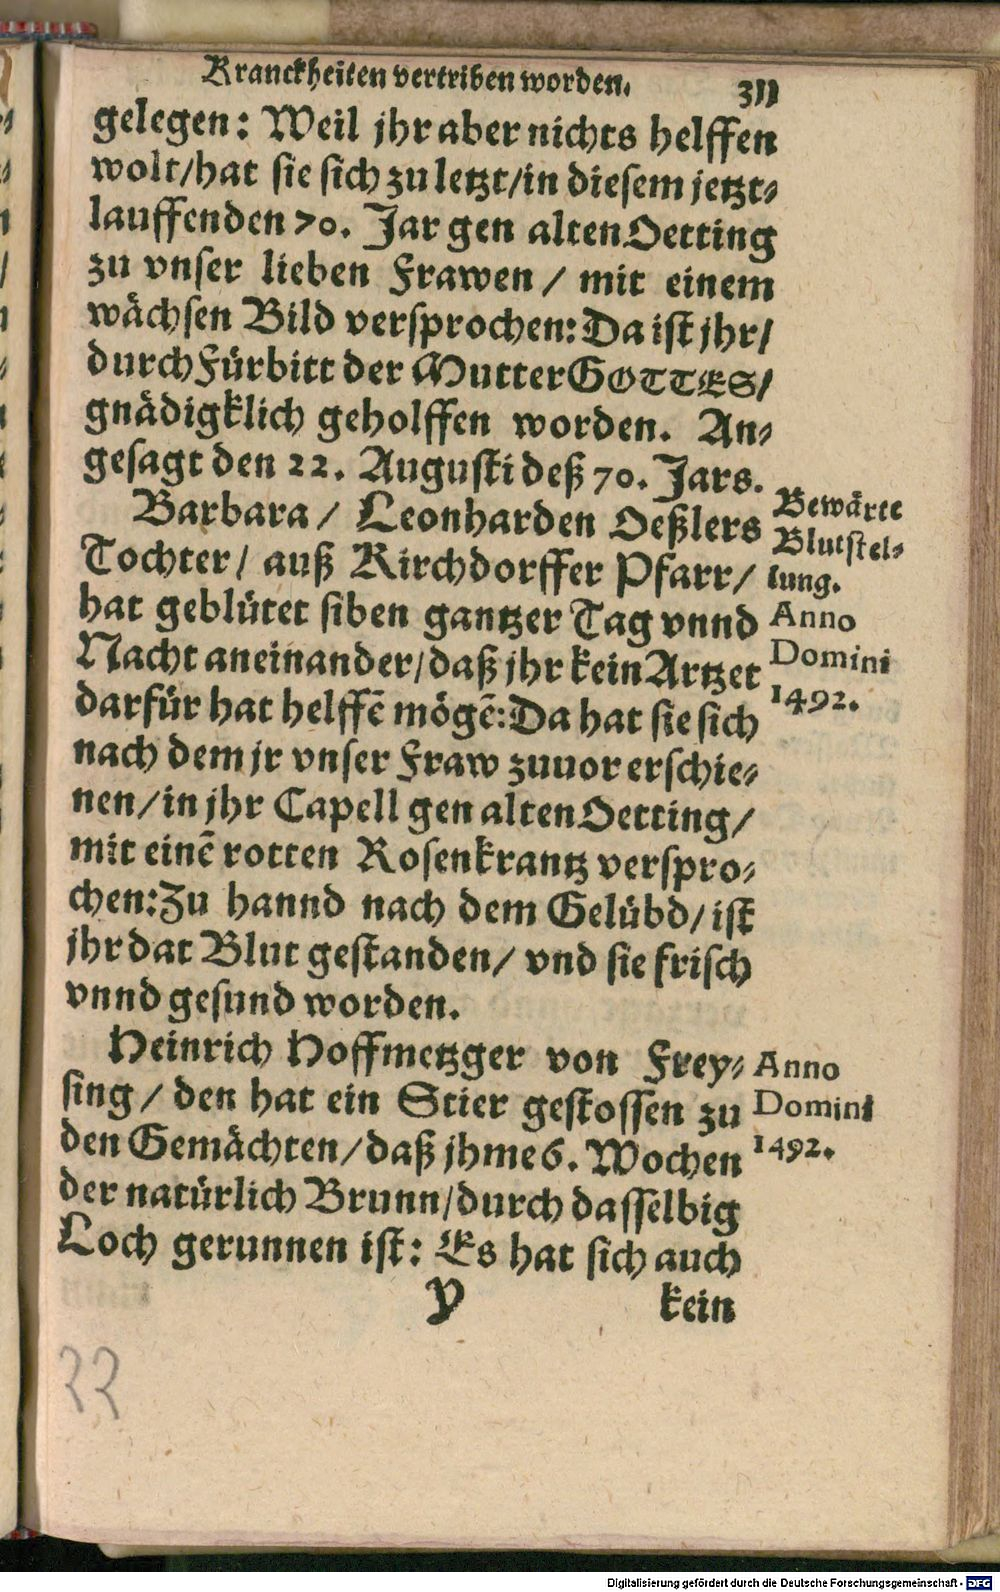 Kranckheiten vertriben worden. 311
gelegen: Weil jhr aber nichts helffen
wolt/hat sie sich zu letzt/in diesem jetzt-
lauffenden 70. Jar gen alten Oetting
zu vnser lieben Frawen / mit einem
wächsen Bild versprochen: Da ist jhr/
durch Fürbitt der Mutter GOTTES/
gnädigklich geholffen worden. An-
gesagt den 22. Augusti deß 70. Jars.
Barbara / Leonharden Oeßlers
Tochter / auß Kirchdorffer Pfarr /
hat geblütet siben gantzer Tag vnnd
Nacht aneinander/daß jhr kein Artzet
darfür hat helffē mögē: Da hat sie sich
nach dem jr vnser Fraw zuuor erschie-
nen/in jhr Capell gen alten Oetting/
mit einē rotten Rosenkrantz verspro-
chen: Zu hannd nach dem Gelübd/ist
jhr dat Blut gestanden/ vnd sie frisch
vnnd gesund worden.
Bewärte
Blutstel-
lung.
Anno
Domini
1492.
Heinrich Hoffmetzger von Frey-
sing / den hat ein Stier gestossen zu
den Gemächten/daß jhme 6. Wochen
der natürlich Brunn/durch dasselbig
Loch gerunnen ist: Es hat sich auch
Anno
Domini
1492.
Y kein
22
Digitalisierung gefördert durch die Deutsche Forschungsgemeinschaft - DFG